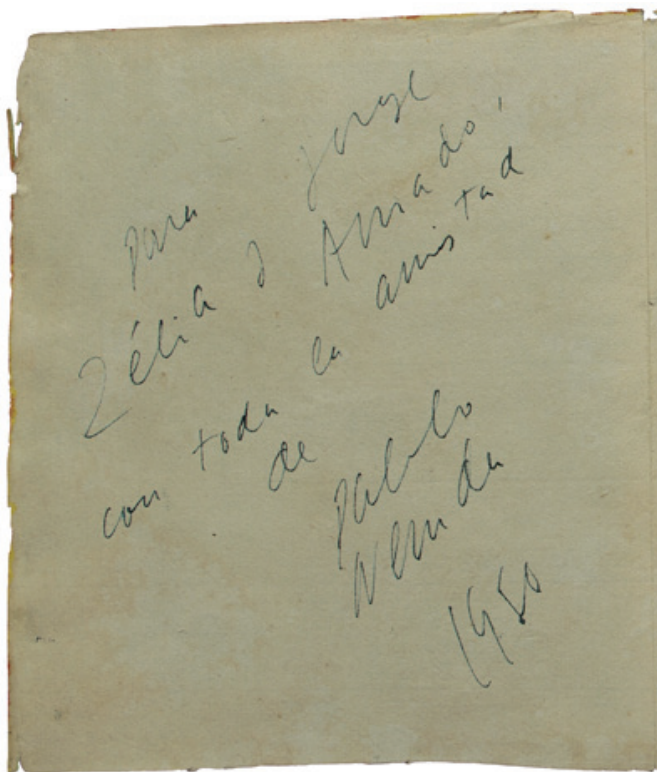 Para Jorge
Zélia y Amado,
con toda la amistad
de
Pablo
Neruda
1950